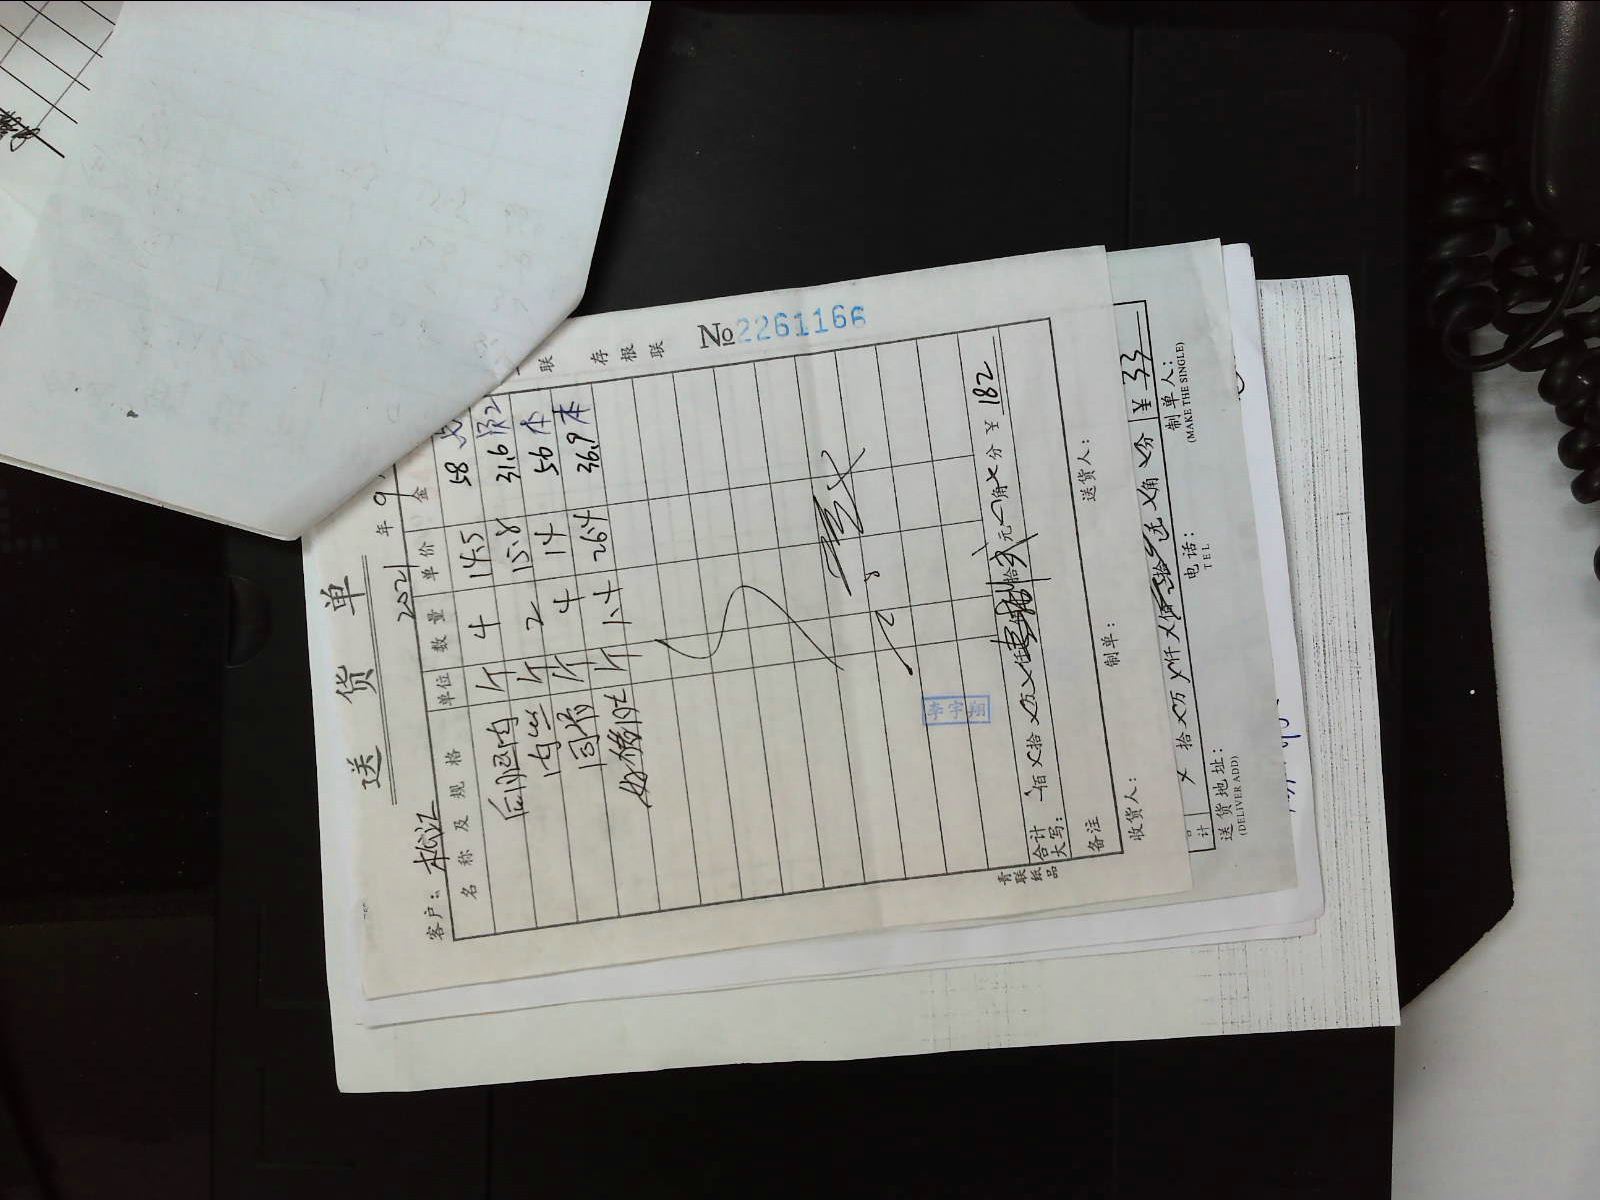 送 货 单
一联 存根联
№2261166
客户: 松江 2021 年 9
名 称 及 规 格 单位 数 量 单 价 金
后腿肉 斤 4 14.5 58
肉丝 斤 2 15.8 31.6
同前 斤 4 14 56 本
斤 1.4 26.4 36.9 本
李宇翔
合计大写: 佰 拾 万 仟 佰 拾 元 角 分 ¥ 182
青联纸品
备注
收货人: 制单: 送货人:
合计 拾 万 仟 佰 拾 元 角 分 ¥ 33
送货地址: 电话: 制单人:
(DELIVER ADD) TEL (MAKE THE SINGLE)